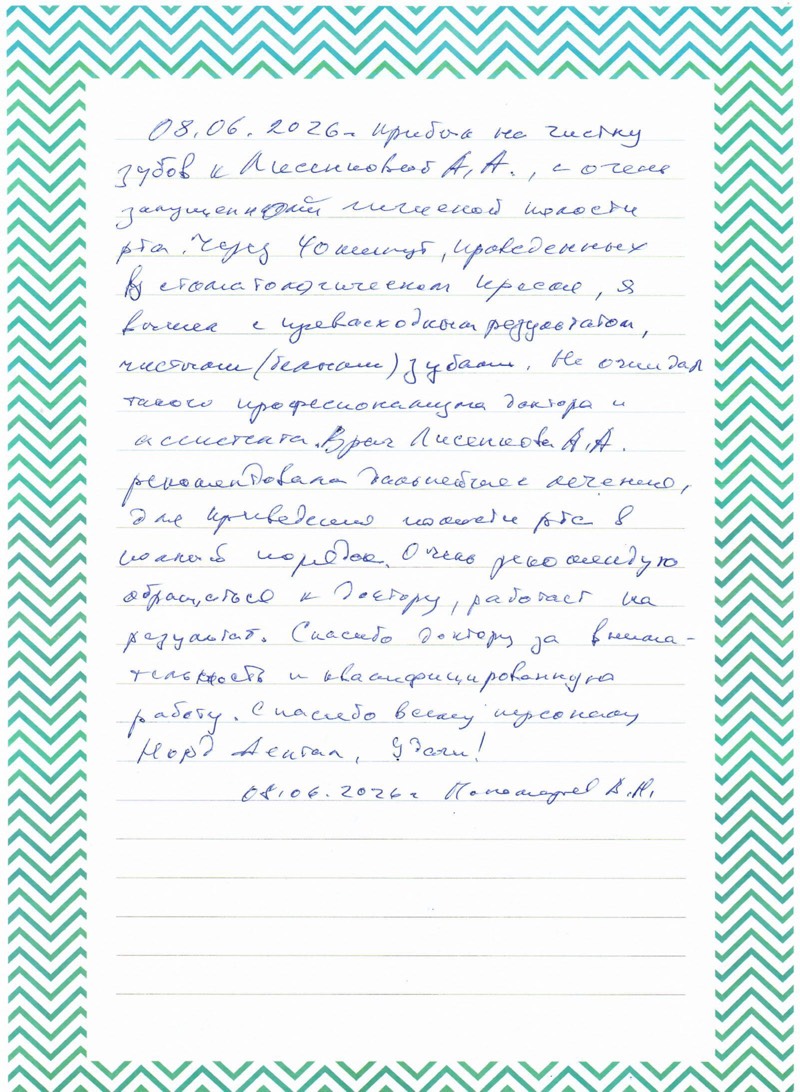 08.06.2026г прибыл на чистку
зубов к Лисенковой А.А., с очень
запущенной гигиеной полости
рта. Через 40 минут, проведенных
в стоматологическом кресле, я
вышел с превосходным результатом,
чистыми (белыми) зубами. Не ожидал
такого професионализма доктора и
ассистента. Врач Лисенкова А.А.
рекомендовала дальнейшее лечение,
для приведения полости рта в
полный порядок. Очень рекомендую
обращаться к Доктору, работает на
результат. Спасибо доктору за внима-
тельность и квалифицированную
работу. Спасибо всему персоналу
Норд Дентал, Удачи!
08.06.2026г Пономарев В.Н.